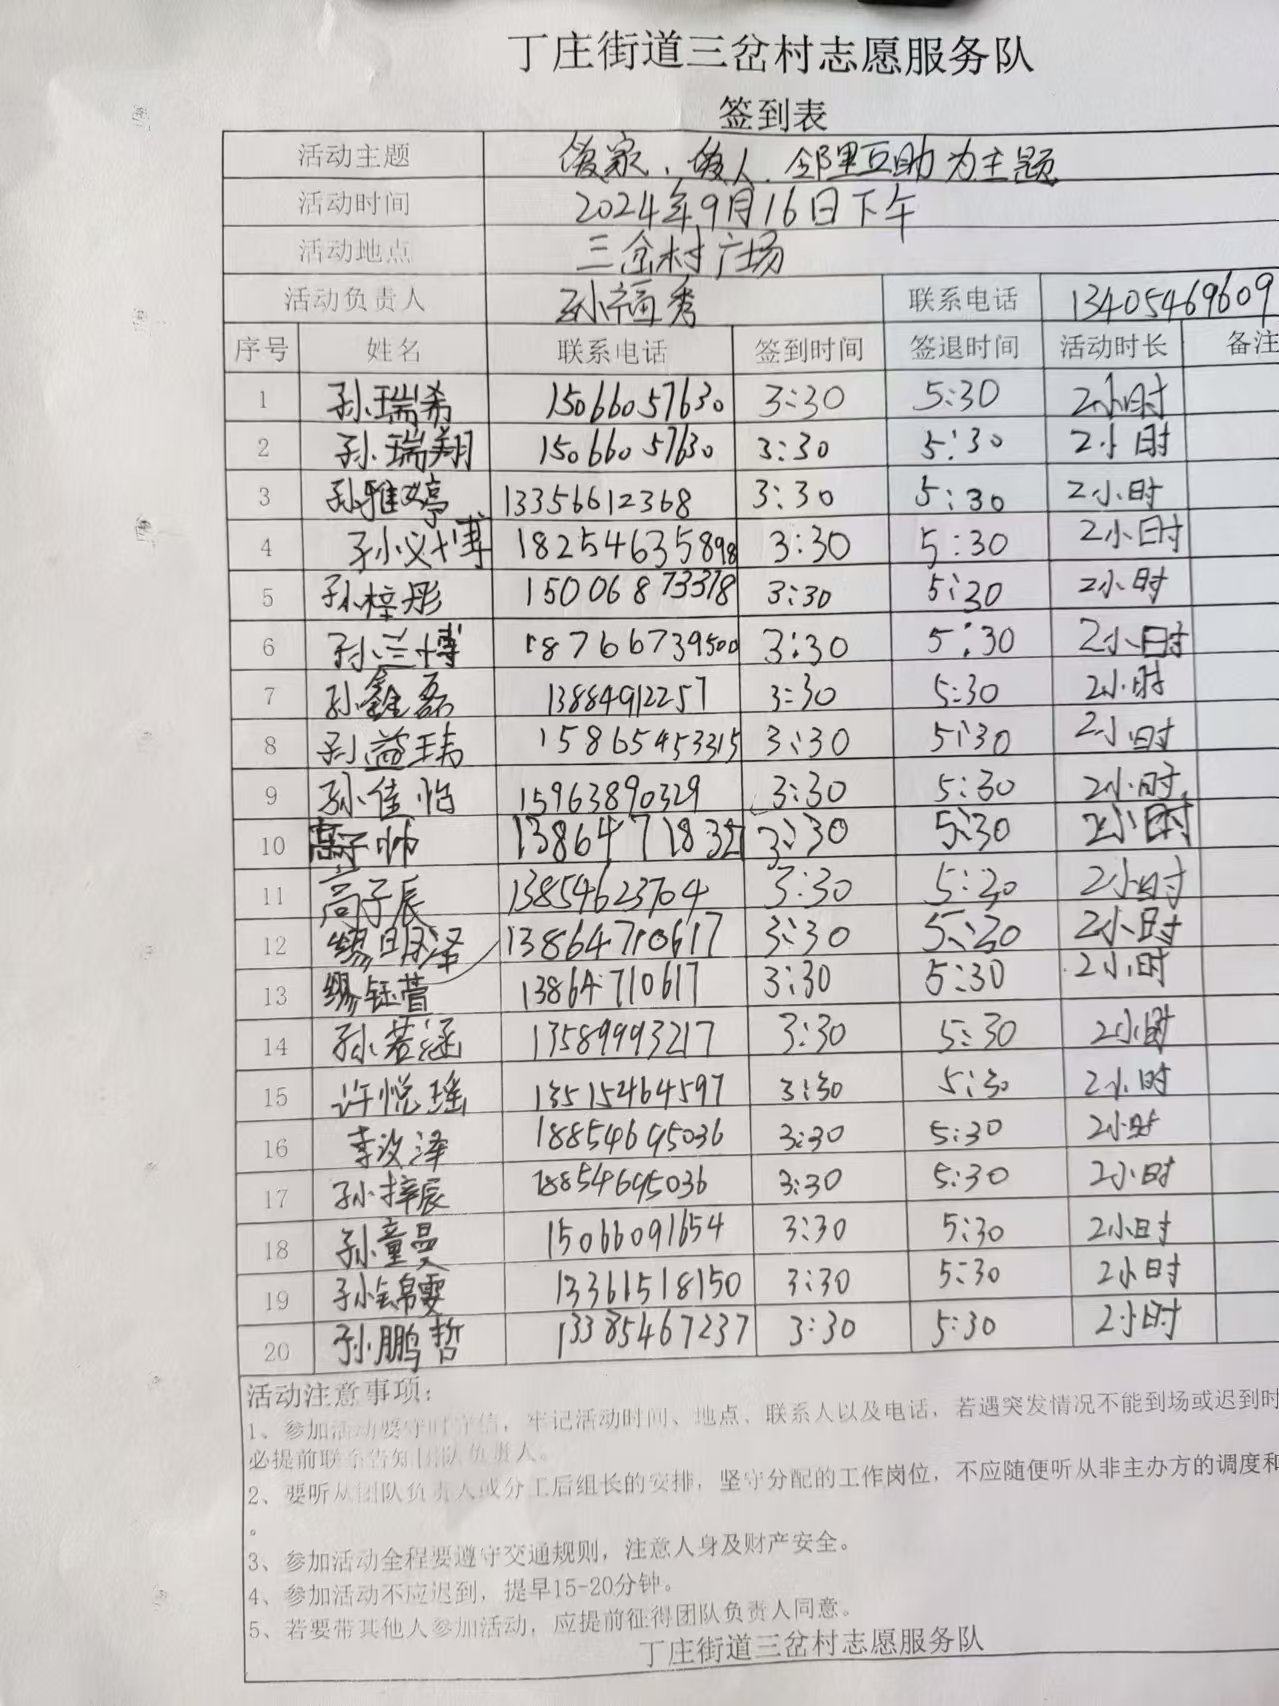 丁庄街道三岔村志愿服务队
签到表
活动主题 家、人、邻里互助为主题
活动时间 2024年9月16日下午
活动地点 三岔村广场
活动负责人 孙福秀 联系电话 13405469609
序号 姓名 联系电话 签到时间 签退时间 活动时长 备注
1 孙瑞希 15066057630 3:30 5:30 2小时
2 孙瑞翔 15066057630 3:30 5:30 2小时
3 孙雅婷 13356612368 3:30 5:30 2小时
4 孙义博 18254635898 3:30 5:30 2小时
5 孙梓彤 15006873378 3:30 5:30 2小时
6 孙兰博 18766739500 3:30 5:30 2小时
7 孙鑫磊 13884912257 3:30 5:30 2小时
8 孙益玮 15865453315 3:30 5:30 2小时
9 孙佳怡 15963890329 3:30 5:30 2小时
10 高子帅 13864771832 3:30 5:30 2小时
11 高子辰 13854623704 3:30 5:30 2小时
12 明泽 13864710617 3:30 5:30 2小时
13 钰萱 13864710617 3:30 5:30 2小时
14 孙若涵 13589993217 3:30 5:30 2小时
15 许悦瑶 13515464597 3:30 5:30 2小时
16 李汶泽 18854695036 3:30 5:30 2小时
17 孙梓辰 18854695036 3:30 5:30 2小时
18 孙童曼 15066091654 3:30 5:30 2小时
19 孙锦雯 13361518150 3:30 5:30 2小时
20 孙鹏哲 13385467237 3:30 5:30 2小时
活动注意事项:
1、参加活动要守时守信,牢记活动时间、地点、联系人以及电话,若遇突发情况不能到场或迟到时
必提前联系告知团队负责人。
2、要听从团队负责人或分工后组长的安排,坚守分配的工作岗位,不应随便听从非主办方的调度和
。
3、参加活动全程要遵守交通规则,注意人身及财产安全。
4、参加活动不应迟到,提早15-20分钟。
5、若要带其他人参加活动,应提前征得团队负责人同意。
丁庄街道三岔村志愿服务队